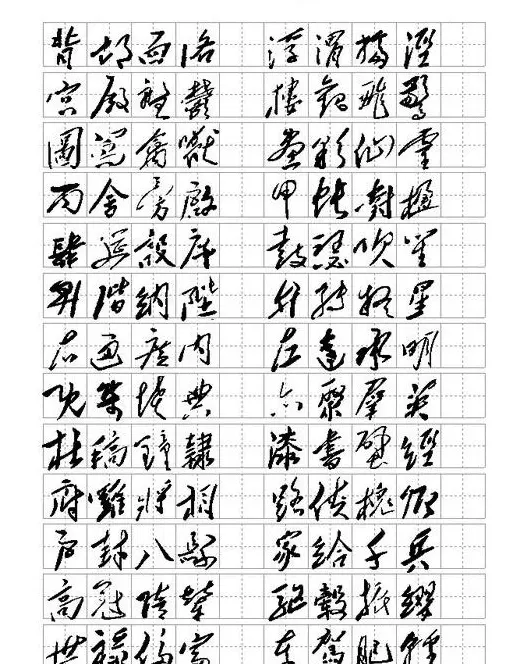 背邙面洛 浮渭據涇
宮殿盤鬱 樓觀飛驚
圖寫禽獸 畫彩仙靈
丙舍旁啟 甲帳對楹
肆筵設席 鼓瑟吹笙
昇階納陛 弁轉疑星
右通廣內 左達承明
既集墳典 亦聚羣英
杜稿鐘隸 漆書壁經
府羅將相 路俠槐卿
戶封八縣 家給千兵
高冠陪輦 驅轂振纓
世祿侈富 車駕肥輕